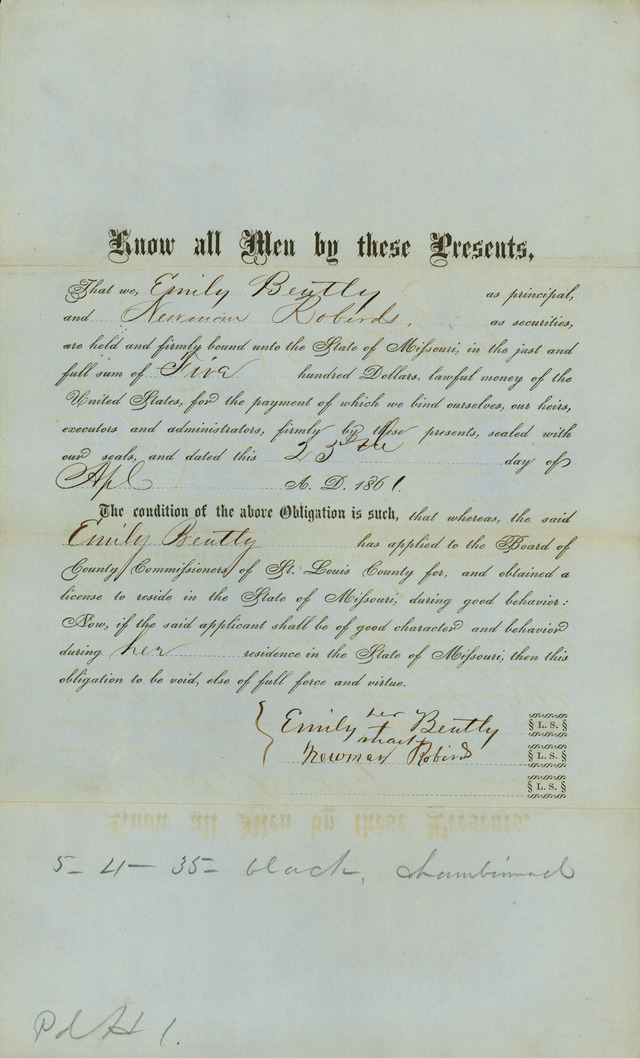 Know all Men by these Presents,
That we, Emily Beutly as principal,
and Newman Robirds, as securities,
are held and firmly bound unto the State of Missouri, in the just and
full sum of Five hundred Dollars, lawful money of the
United States, for the payment of which we bind ourselves, our heirs,
executors and administrators, firmly by these presents, sealed with
our seals, and dated this 23 day of
Apl A. D. 1861.
The condition of the above Obligation is such, that whereas, the said
Emily Beutly has applied to the Board of
County Commissioners of St. Louis County for, and obtained a
license to reside in the State of Missouri, during good behavior:
Now, if the said applicant shall be of good character and behavior
during her residence in the State of Missouri, then this
obligation to be void, else of full force and virtue.
Emily her Beutly L. S.
mark
Newman Robirds L. S.
L. S.
5-4-35- black,
Pd 1.